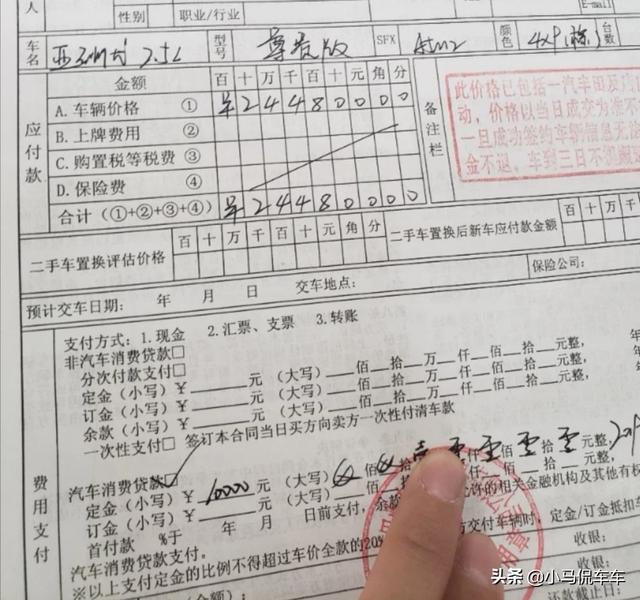 人
性别
职业/行业
E-mail
车名 亚洲龙 2.5L 型号 尊贵版 SFX 颜色 台数
应付款
金额 百 十 万 千 百 十 元 角 分
A. 车辆价格 ① 2 4 4 8 0 0 0 0
B. 上牌费用 ②
C. 购置税等税费 ③
D. 保险费 ④
合计 (①+②+③+④) 2 4 4 8 0 0 0 0
备注栏
此价格已包括一汽丰田及店
动，价格以当日成交为准不
一旦成功签约车辆信息无
金不退。车到三日不
二手车置换评估价格 百 十 万 千 百 十 元 角 分
二手车置换后新车应付款金额 百 十 万
预计交车日期： 年 月 日 交车地点：
保险公司：
费用支付
支付方式：1. 现金 2. 汇票、支票 3. 转账
非汽车消费贷款□
分次付款支付□
定金（小写）￥____元（大写）__佰__拾__万__仟__佰__拾__元整，
订金（小写）￥____元（大写）__佰__拾__万__仟__佰__拾__元整，
余款（小写）￥____元（大写）__佰__拾__万__仟__佰__拾__元整，
一次性支付□ 签订本合同当日买方向卖方一次性付清车款
汽车消费贷款□
定金（小写）￥10000元（大写） 佰 拾 仟 佰 拾 元整，
订金（小写）￥____元（大写）
首付款 %于 年 月 日前支付，余款 允许的相关金融机构及其他有权
汽车消费贷款支付。
※以上支付定金的比例不得超过车价全款的20%
方交付车辆时，定金/订金抵扣车
收银：
收银：
还款截止日：
头条 @小马侃车车